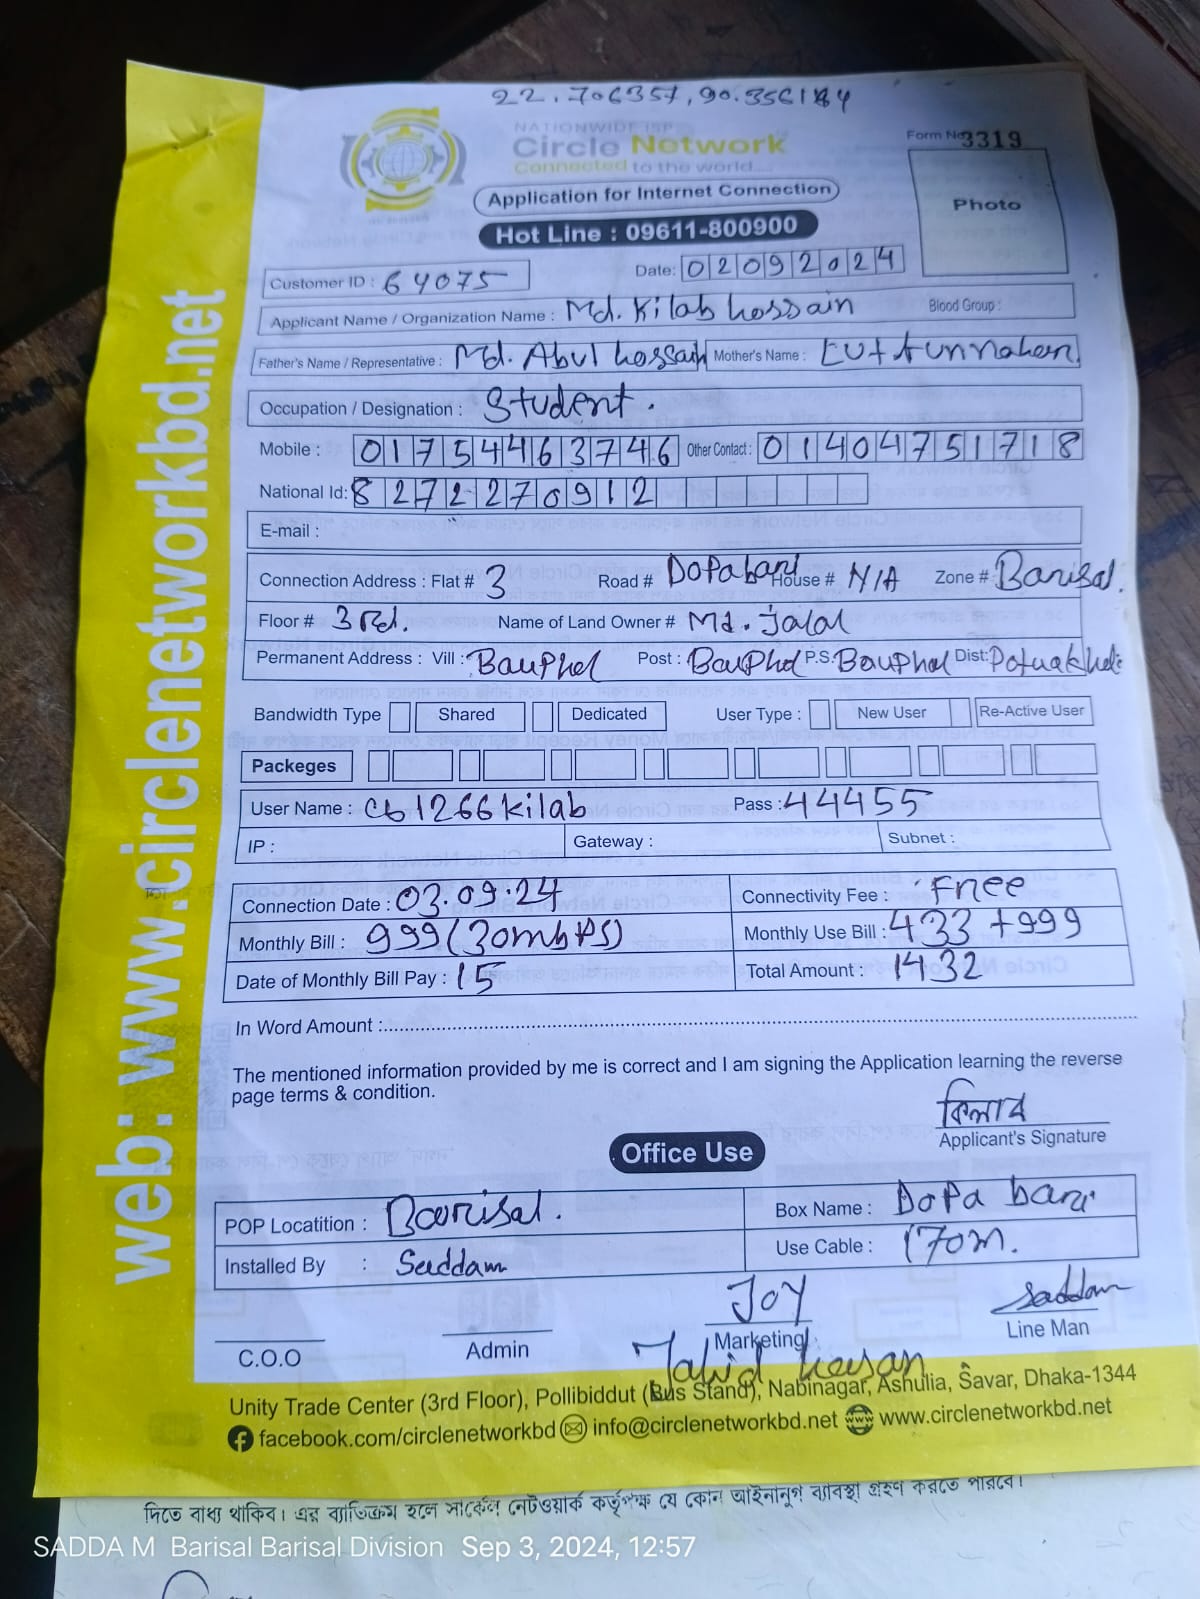 22.706357, 90.356184
NATIONWIDE ISP
Circle Network
Connected to the world....
Form No 3319
Application for Internet Connection
Photo
Hot Line : 09611-800900
Customer ID : 64075
Date: 02092024
Applicant Name / Organization Name : Md. Kilab hossain Blood Group :
Father's Name / Representative : Md. Abul hossain Mother's Name : Lutfunnahen
Occupation / Designation : Student.
Mobile : 01754463746 Other Contact : 01404751718
National Id: 8272270912
E-mail :
Connection Address : Flat # 3 Road # Dopabari House # N/A Zone # Barisal.
Floor # 3rd. Name of Land Owner # Md. Jalal
Permanent Address : Vill : Bauphol Post : Bauphol P.S: Bauphal Dist: Potuakhali
Bandwidth Type Shared Dedicated User Type : New User Re-Active User
Packeges
User Name : cb1266kilab Pass : 44455
IP : Gateway : Subnet :
Connection Date : 03.09.24 Connectivity Fee : Free
Monthly Bill : 999 (30mbps) Monthly Use Bill : 433 +999
Date of Monthly Bill Pay : 15 Total Amount : 1432
In Word Amount :
The mentioned information provided by me is correct and I am signing the Application learning the reverse
page terms & condition.
কিলাব
Applicant's Signature
Office Use
POP Locatition : Barisal. Box Name : Dopa bari
Installed By : Saddam Use Cable : 170m.
Joy Saddam
C.O.O Admin Marketing Line Man
Jahid hasan
Unity Trade Center (3rd Floor), Pollibiddut (Bus Stand), Nabinagar, Ashulia, Savar, Dhaka-1344
facebook.com/circlenetworkbd info@circlenetworkbd.net www.circlenetworkbd.net
web: www.circlenetworkbd.net
দিতে বাধ্য থাকিব। এর ব্যতিক্রম হলে সার্কেল নেটওয়ার্ক কর্তৃপক্ষ যে কোন আইনানুগ ব্যবস্থা গ্রহণ করতে পারবে।
SADDA M Barisal Barisal Division Sep 3, 2024, 12:57